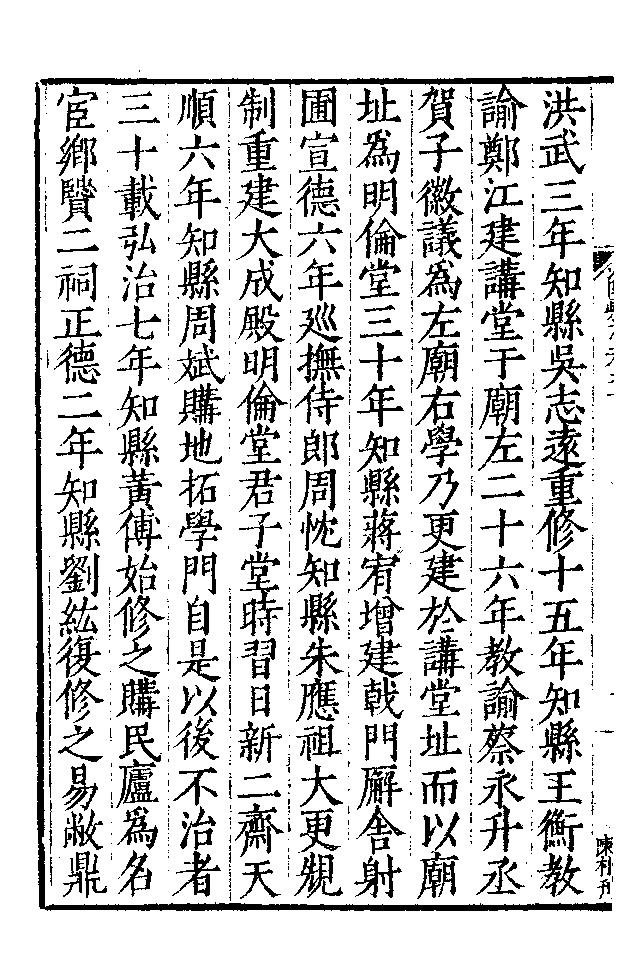 洪武三年知縣吳志遠重修十五年知縣王衡教
諭鄭江建講堂于廟左二十六年教諭蔡永升丞
賀子徽議為左廟右學乃更建於講堂址而以廟
址為明倫堂三十年知縣蔣宥增建戟門廨舍射
圃宣德六年廵撫侍郎周忱知縣朱應祖大更䂓
制重建大成殿明倫堂君子堂時習日新二齋天
順六年知縣周斌購地拓學門自是以後不治者
三十載弘治七年知縣黃傅始修之購民廬為名
宦鄉賢二祠正德二年知縣劉紘復修之易敝鼎